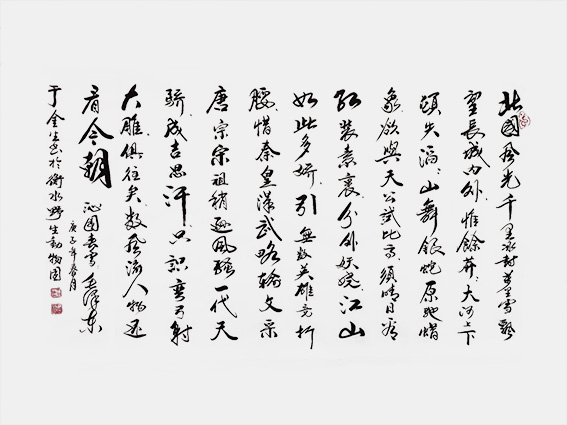 北國風光千里冰封萬里雪飄
望長城內外惟餘莽莽大河上下
頓失滔滔山舞銀蛇原馳蠟
象欲與天公試比高須晴日看
紅裝素裹分外妖嬈江山
如此多嬌引無數英雄競折
腰惜秦皇漢武略輸文采
唐宗宋祖稍遜風騷一代天
驕成吉思汗只識彎弓射
大雕俱往矣數風流人物還
看今朝 沁園春雪 毛澤東
庚子年春月
于金生書於衡水野生動物園